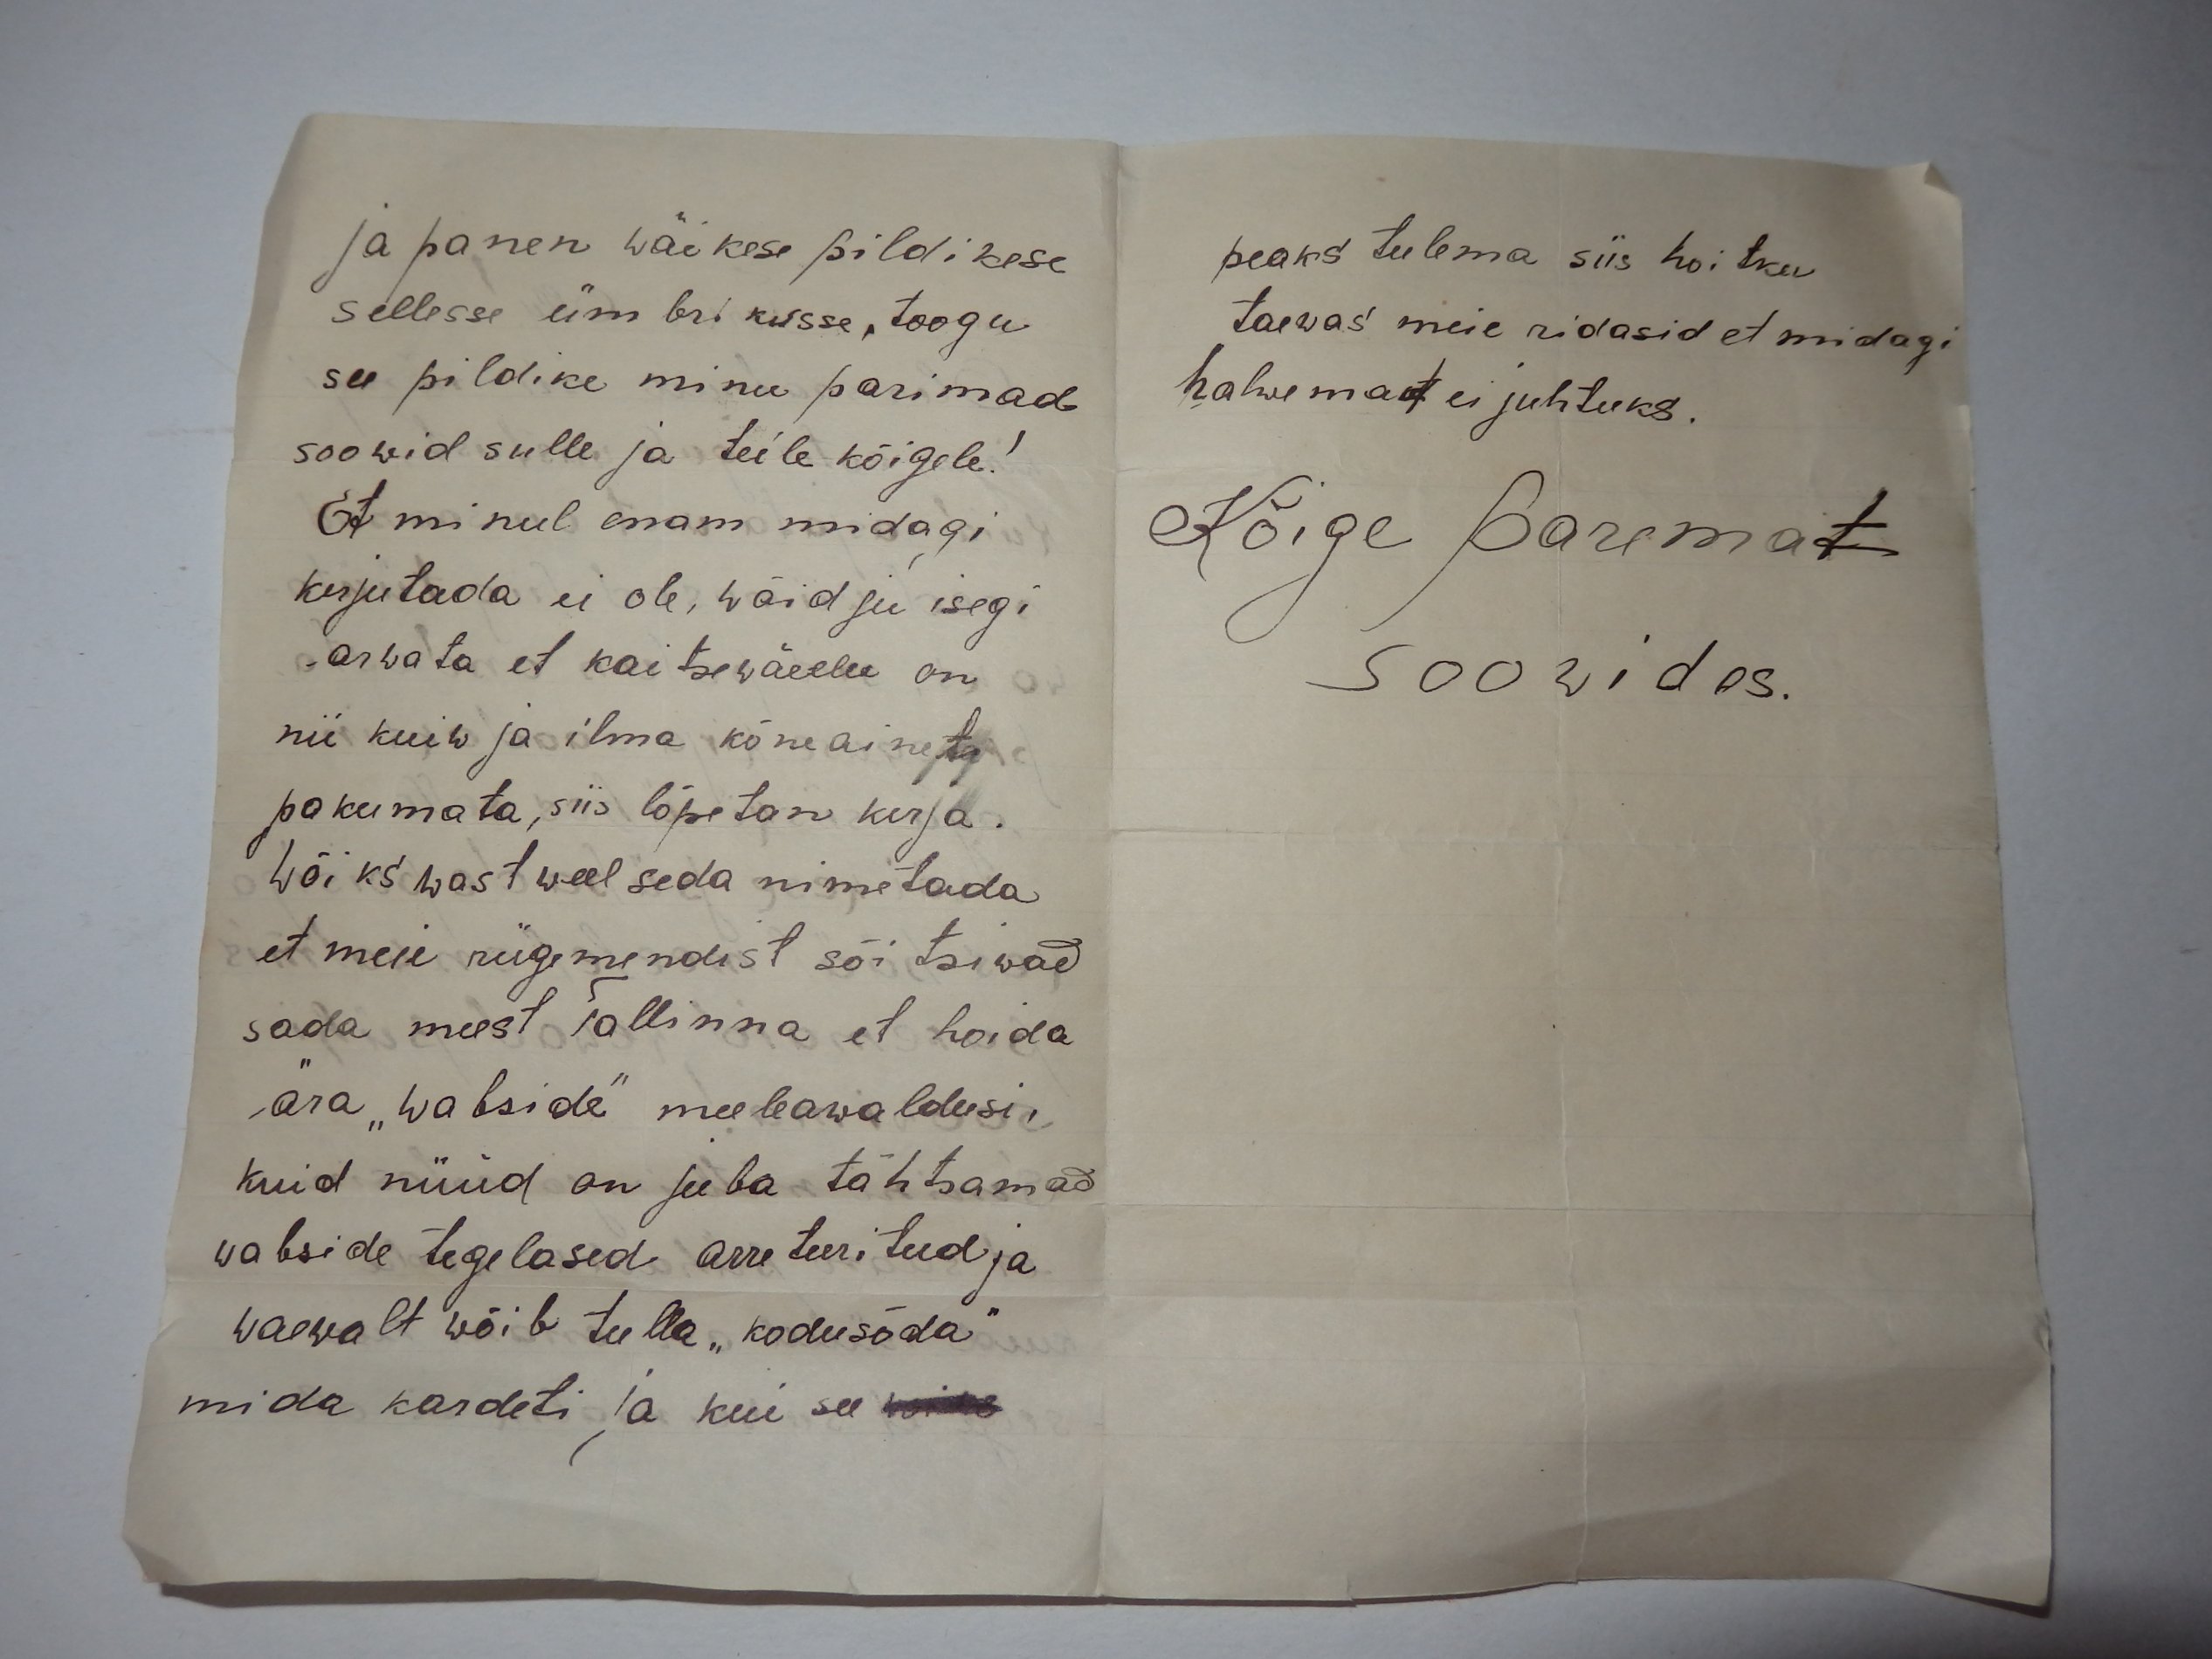 ja panen wäikese pildikese
sellesse ümbrikusse, toogu
see pildike minu parimad
soowid sulle ja teile kõigele!
Et minul enam midagi
kirjutada ei ole, wõid ju isegi
arwata et kaitsewäeelu on
nii kuiw ja ilma kõneaineta
pakumata, siis lõpetan kirja.
Wõiks wast weel seda nimetada
et meie rügemendist sõitsiwad
sada meest Tallinna et hoida
ära „wabside" meeleawaldusi,
kuid nüüd on juba tähtsamad
wabside tegelased arreteeritud ja
waewalt wõib tulla „kodusõda"
mida kardeti, ja kui see
peaks tulema siis hoitku
taewas meie ridasid et midagi
halwemat ei juhtuks.
Kõige paremat
soowides.